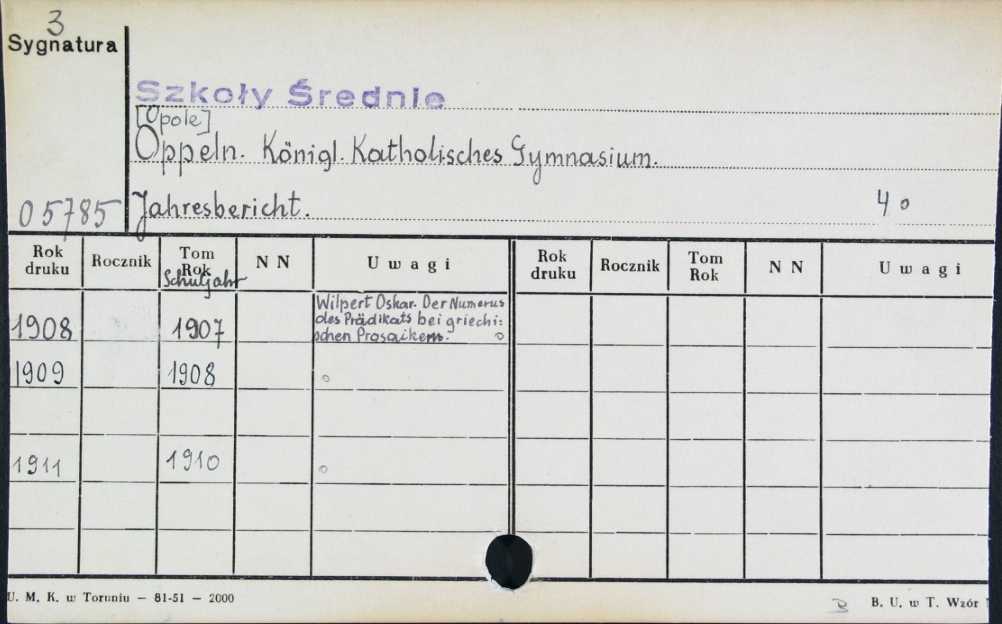 3
Sygnatura
Szkoły Średnie
[Opole]
Oppeln. Königl. Katholisches Gymnasium.
05785 Jahresbericht. 4o
Rok druku Rocznik Tom Rok Schuljahr NN Uwagi Rok druku Rocznik Tom Rok NN Uwagi
1908 1907 Wilpert Oskar. Der Numerus
des Prädikats bei griechi:
schen Prosaikern. o
1909 1908 o
1911 1910 o
U. M. K. w Toruniu — 81-51 — 2000
B. U. w T. Wzór